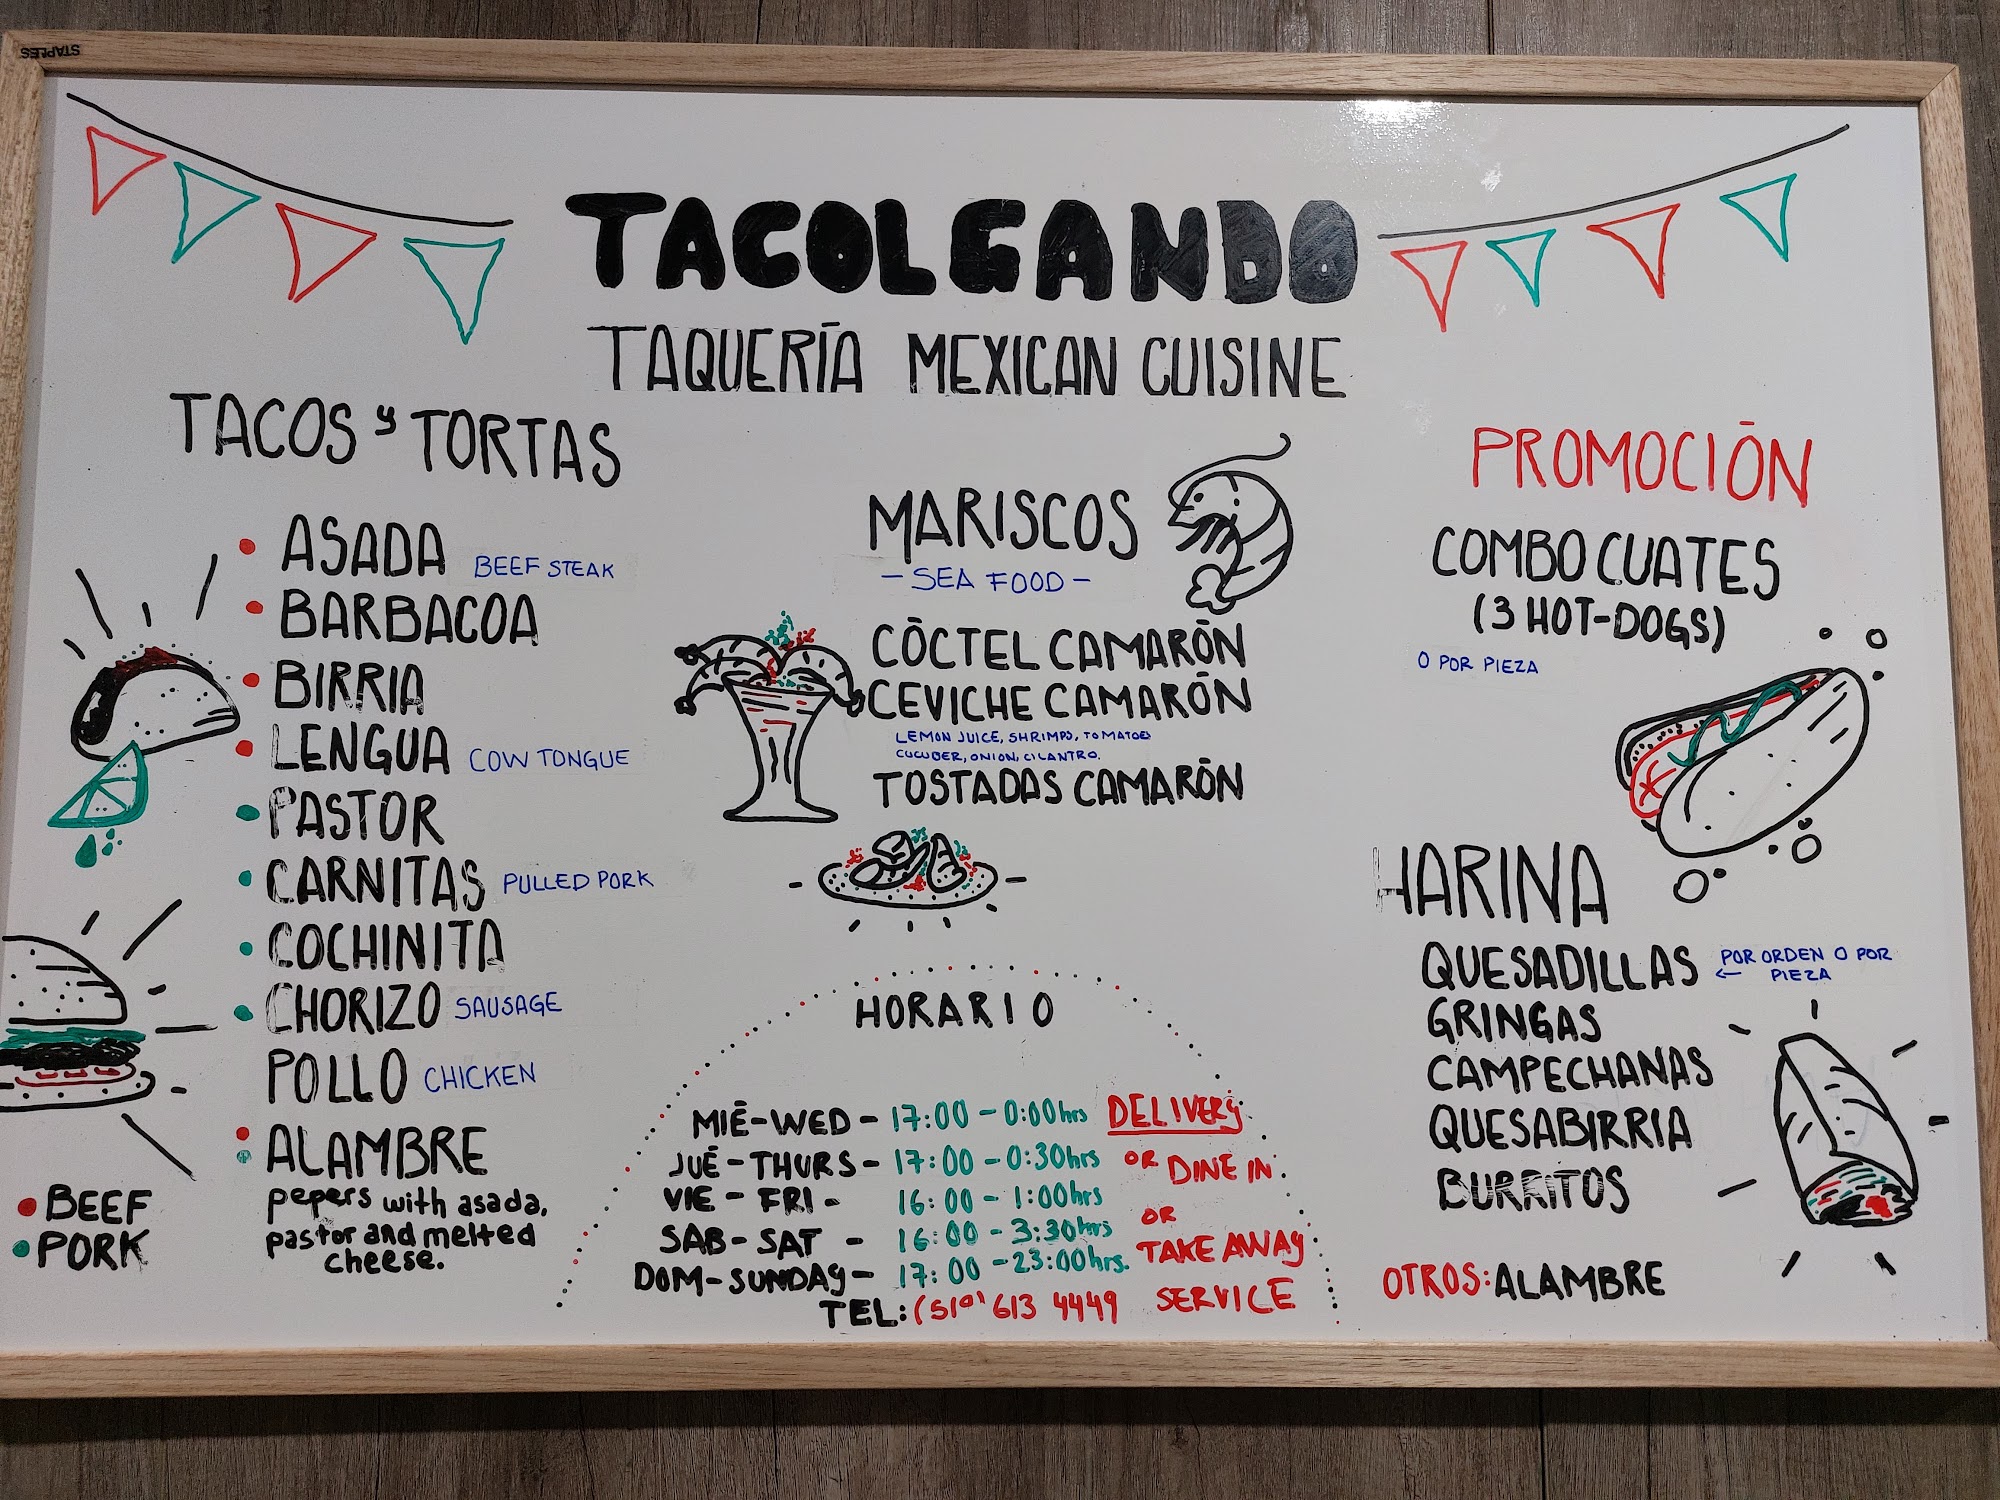 STAPLES
TACOLGANDO
TAQUERÍA MEXICAN CUISINE
TACOS y TORTAS
• ASADA BEEF STEAK
• BARBACOA
• BIRRIA
• LENGUA COW TONGUE
• PASTOR
• CARNITAS PULLED PORK
• COCHINITA
• CHORIZO SAUSAGE
POLLO CHICKEN
• ALAMBRE
pepers with asada,
pastor and melted
cheese.
• BEEF
• PORK
MARISCOS
- SEA FOOD -
CÓCTEL CAMARÓN
CEVICHE CAMARÓN
LEMON JUICE, SHRIMPS, TOMATOES
CUCUBER, ONION, CILANTRO.
TOSTADAS CAMARÓN
HORARIO
MIÉ-WED - 17:00 - 0:00hrs
JUÉ - THURS - 17:00 - 0:30hrs
VIE - FRI - 16:00 - 1:00hrs
SAB - SAT - 16:00 - 3:30hrs
DOM - SUNDAY - 17:00 - 23:00hrs.
TEL: 613 4449
DELIVERY
OR DINE IN
OR
TAKE AWAY
SERVICE
PROMOCIÓN
COMBO CUATES
(3 HOT-DOGS)
O POR PIEZA
HARINA
QUESADILLAS ← POR ORDEN O POR
PIEZA
GRINGAS
CAMPECHANAS
QUESABIRRIA
BURRITOS
OTROS: ALAMBRE